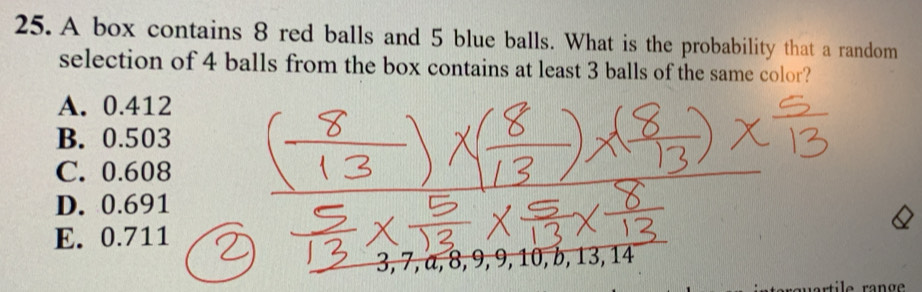 25. A box contains 8 red balls and 5 blue balls. What is the probability that a random
selection of 4 balls from the box contains at least 3 balls of the same color?
A. 0.412
B. 0.503
C. 0.608
D. 0.691
E. 0.711
(8/13) × (8/13) × (8/13) × 5/13
② 5/13 × 5/13 × 5/13 × 8/13
3, 7, a, 8, 9, 9, 10, b, 13, 14
interquartile range